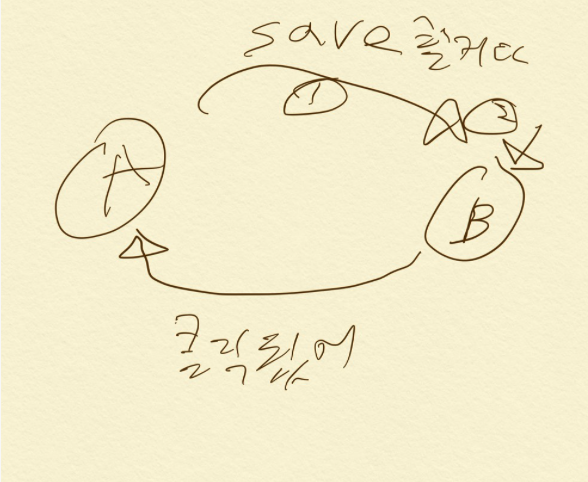 save 할거다
①
②
A
B
클릭됬어